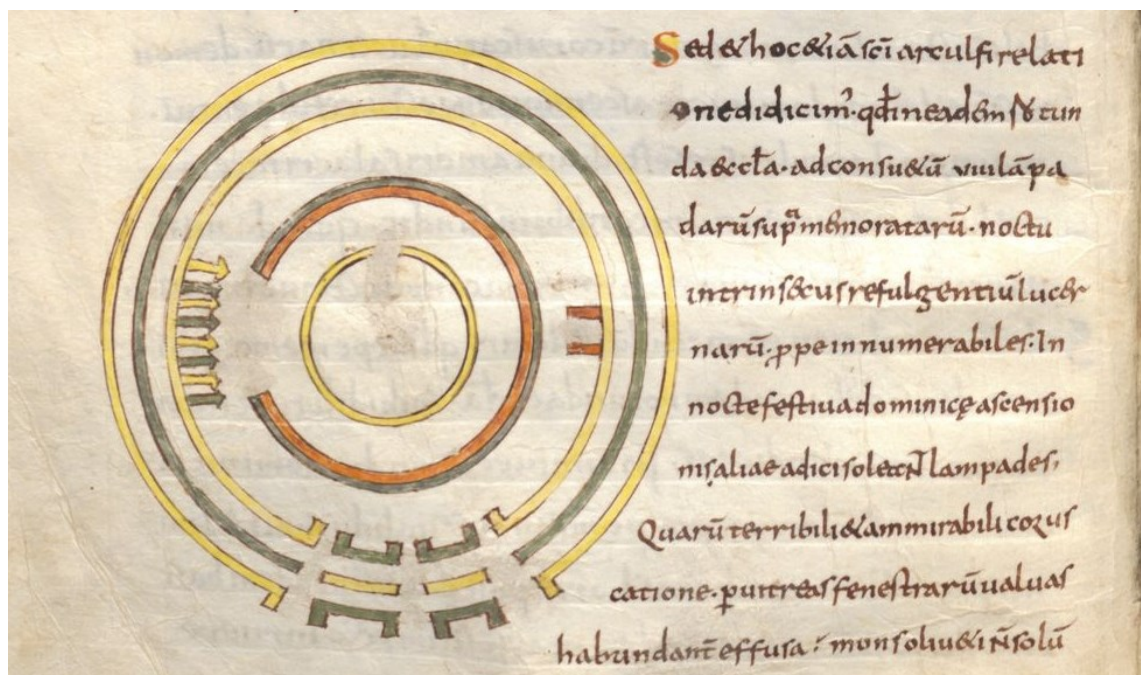 Sed & hoc &iā sc̄i arculfi relati
one didicim᾽· qd̄ in eadem rotun
da &cc̄la· ad consu&ū viii lāpa
darū sup͛a memoratarū· noctu
intrinsecus refulgentiū lucer
narū· ꝓpe innumerabiles· In
nocte festiva dominicę ascensio
nis aliae adici solent lampades,
Quarū terribili & ammirabili corus
catione· ꝑ vitreas fenestrarū valuas
habundant̄ effusa· mons oliu&i n̄ solū